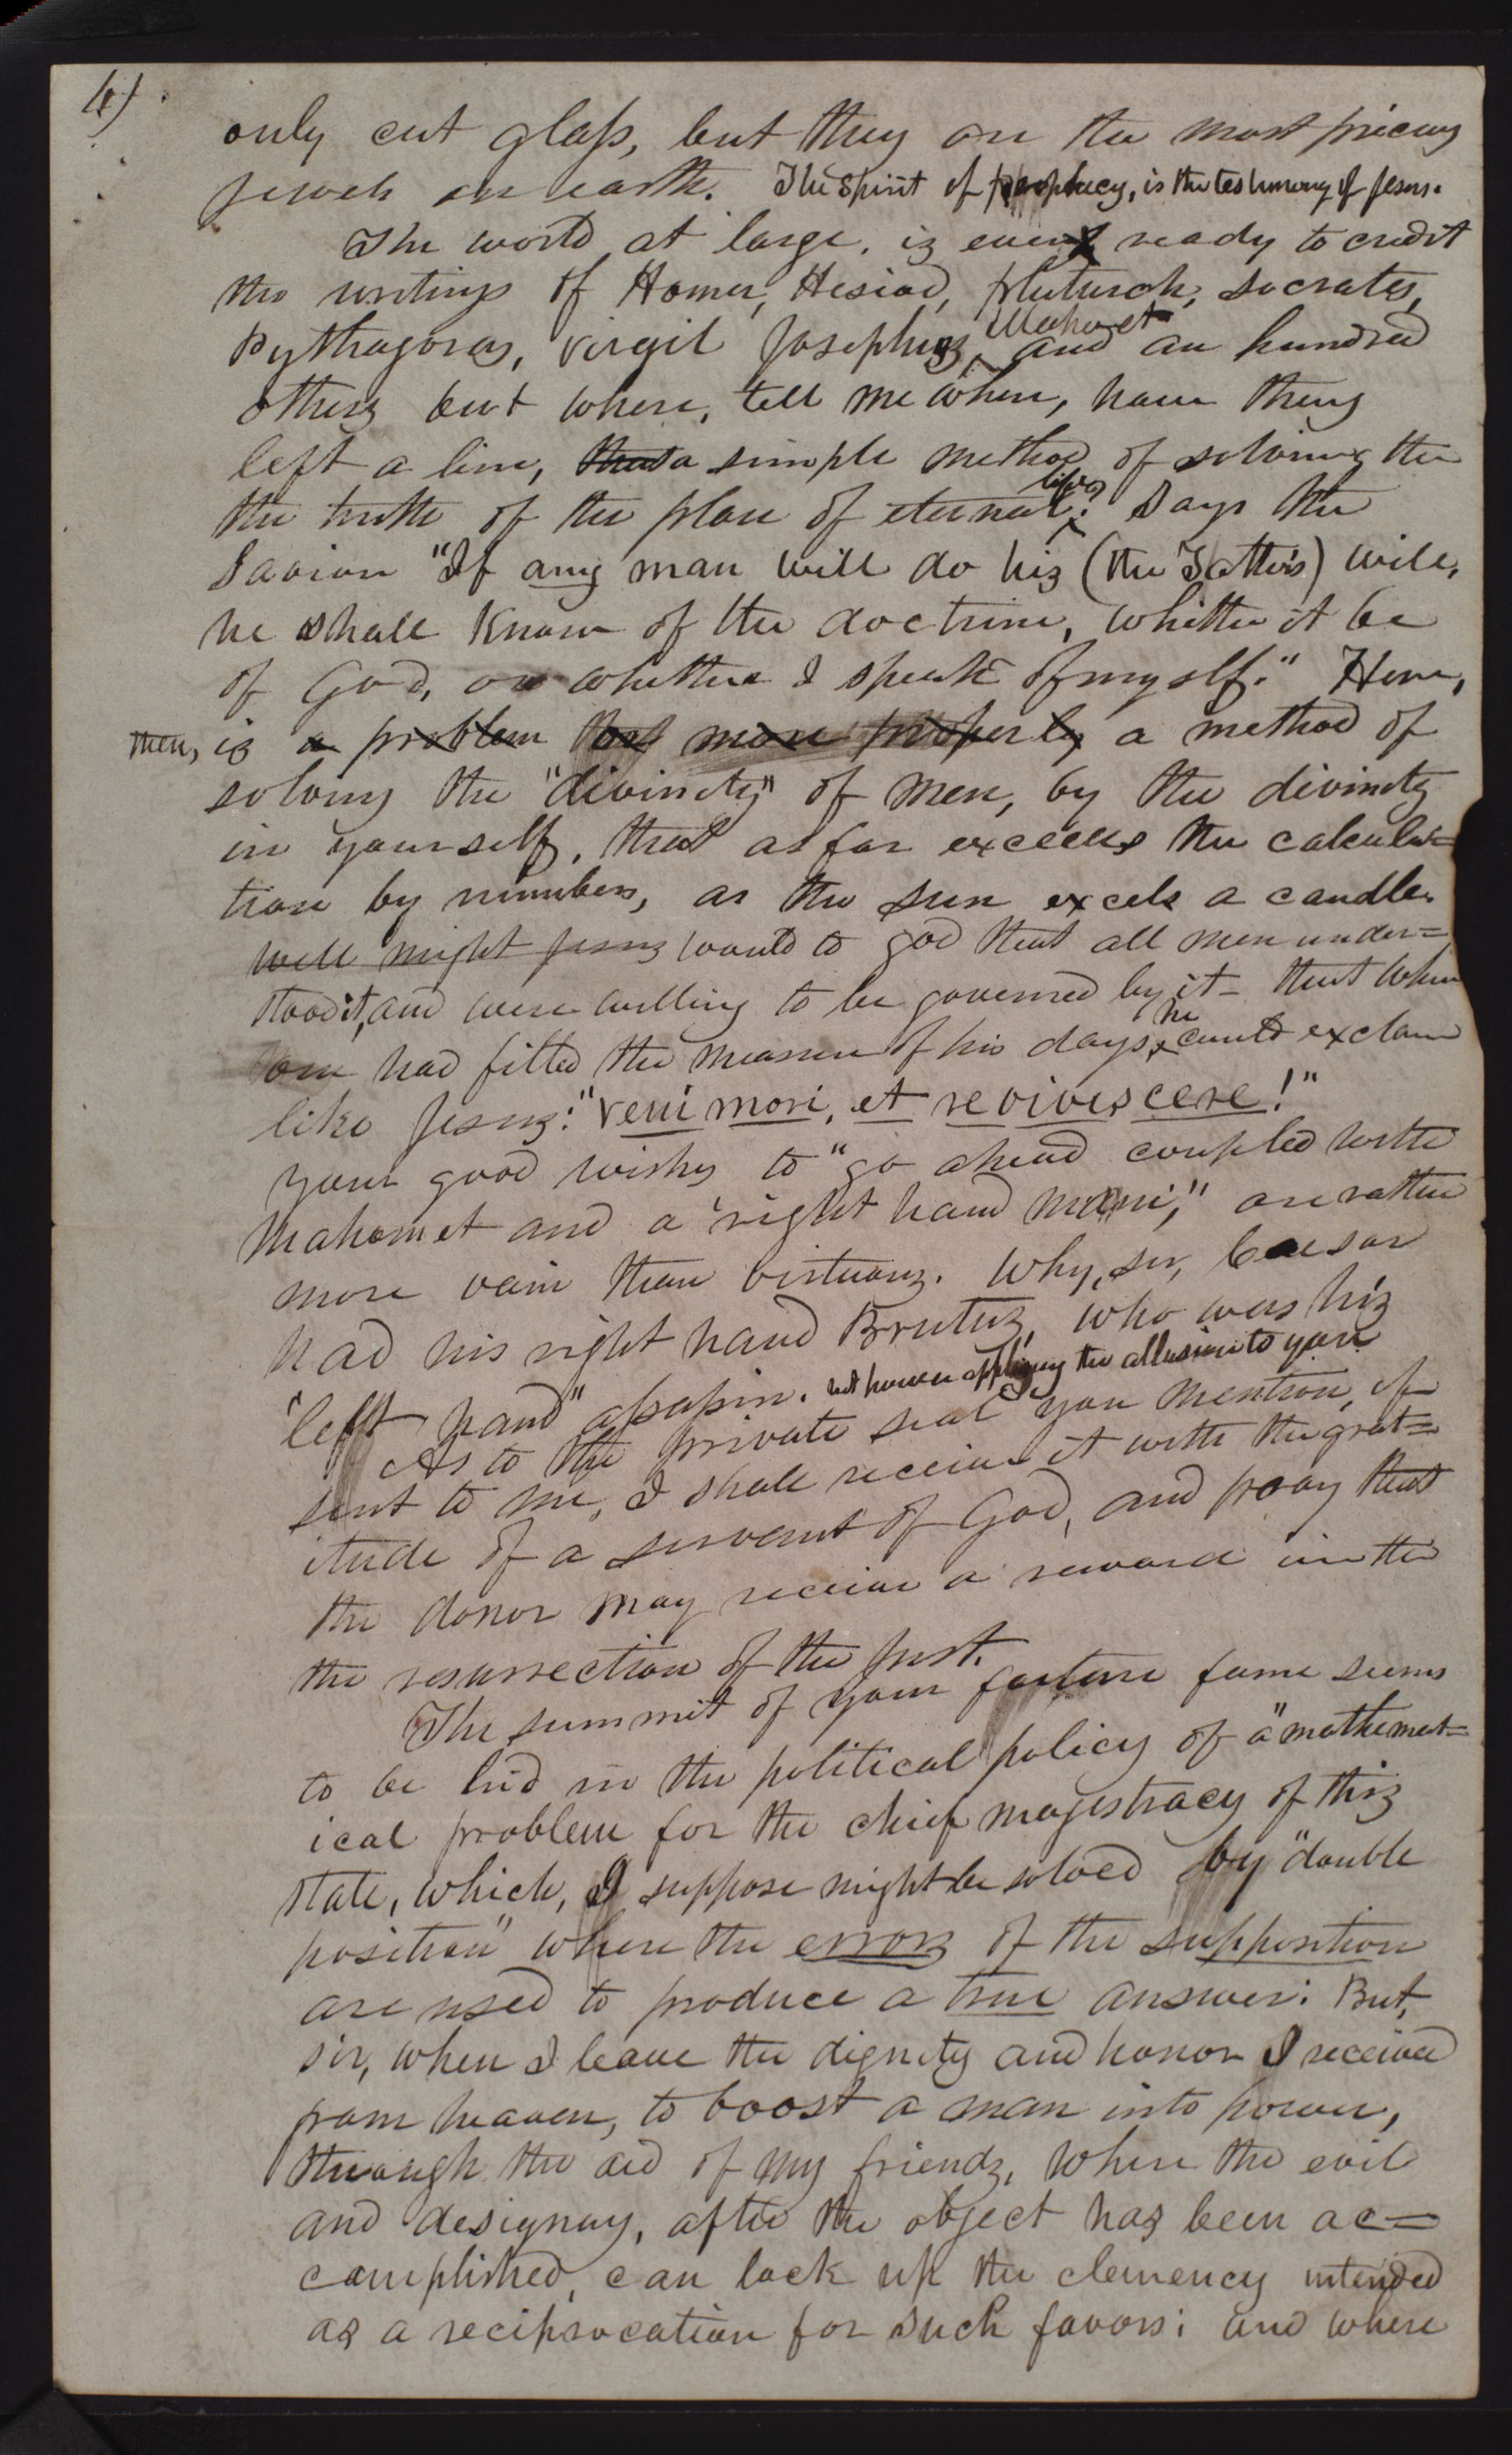 4)
only cut glass, but they are the most precious
jewels on earth. The spirit of prophecy, is the testimony of Jesus.
The world at large, is ever ready to credit
the writings of Homer, Hesiod, Plutarch, Socrates,
Pythagoras, Virgil Josephus, Mahomet and an hundred
others but where, tell me where, have they
left a line, a simple method of solving the
the truth of the plan of eternal life? Says the
Savior "If any man will do his (the Father's) will,
he shall know of the doctrine, whether it be
of God, or whether I speak of myself." Here,
then, is a problem that more properly a method of
solving the "divinity" of men, by the divinity
in yourself, that as far exceeds the calcula=
tion by numbers, as the sun excels a candle.
well might Jesus would to God that all men under=
stood it, and were willing to be governed by it– that when
one had filled the measure of his days, he could exclaim
like Jesus: "Veni mori, et reviviscere!"
your good wishes to "go ahead coupled with
Mahomet and a "right hand man," are rather
more vain than virtuous. Why, sir, Caesar
had his right hand Brutus, who was his
"left hand" assassin. not however applying the allusion to you
As to the private seal you mention, if
sent to me, I shall receive it with the grat=
itude of a servant of God, and pray that
the donor may receive a reward in the
the resurrection of the just.
The summit of your future fame seems
to be hid in the political policy of a "mathemat=
ical problem for the chief magistracy of this
state, which, I suppose might be solved by "double
position" where the errors of the supposition
are used to produce a true answer: But,
sir, when I leave the dignity and honor I received
from heaven, to boost a man into power,
through the aid of my friends, where the evil
and designing, after the object has been ac=
complished, can lock up the clemency intended
as a reciprocation for such favors; and where